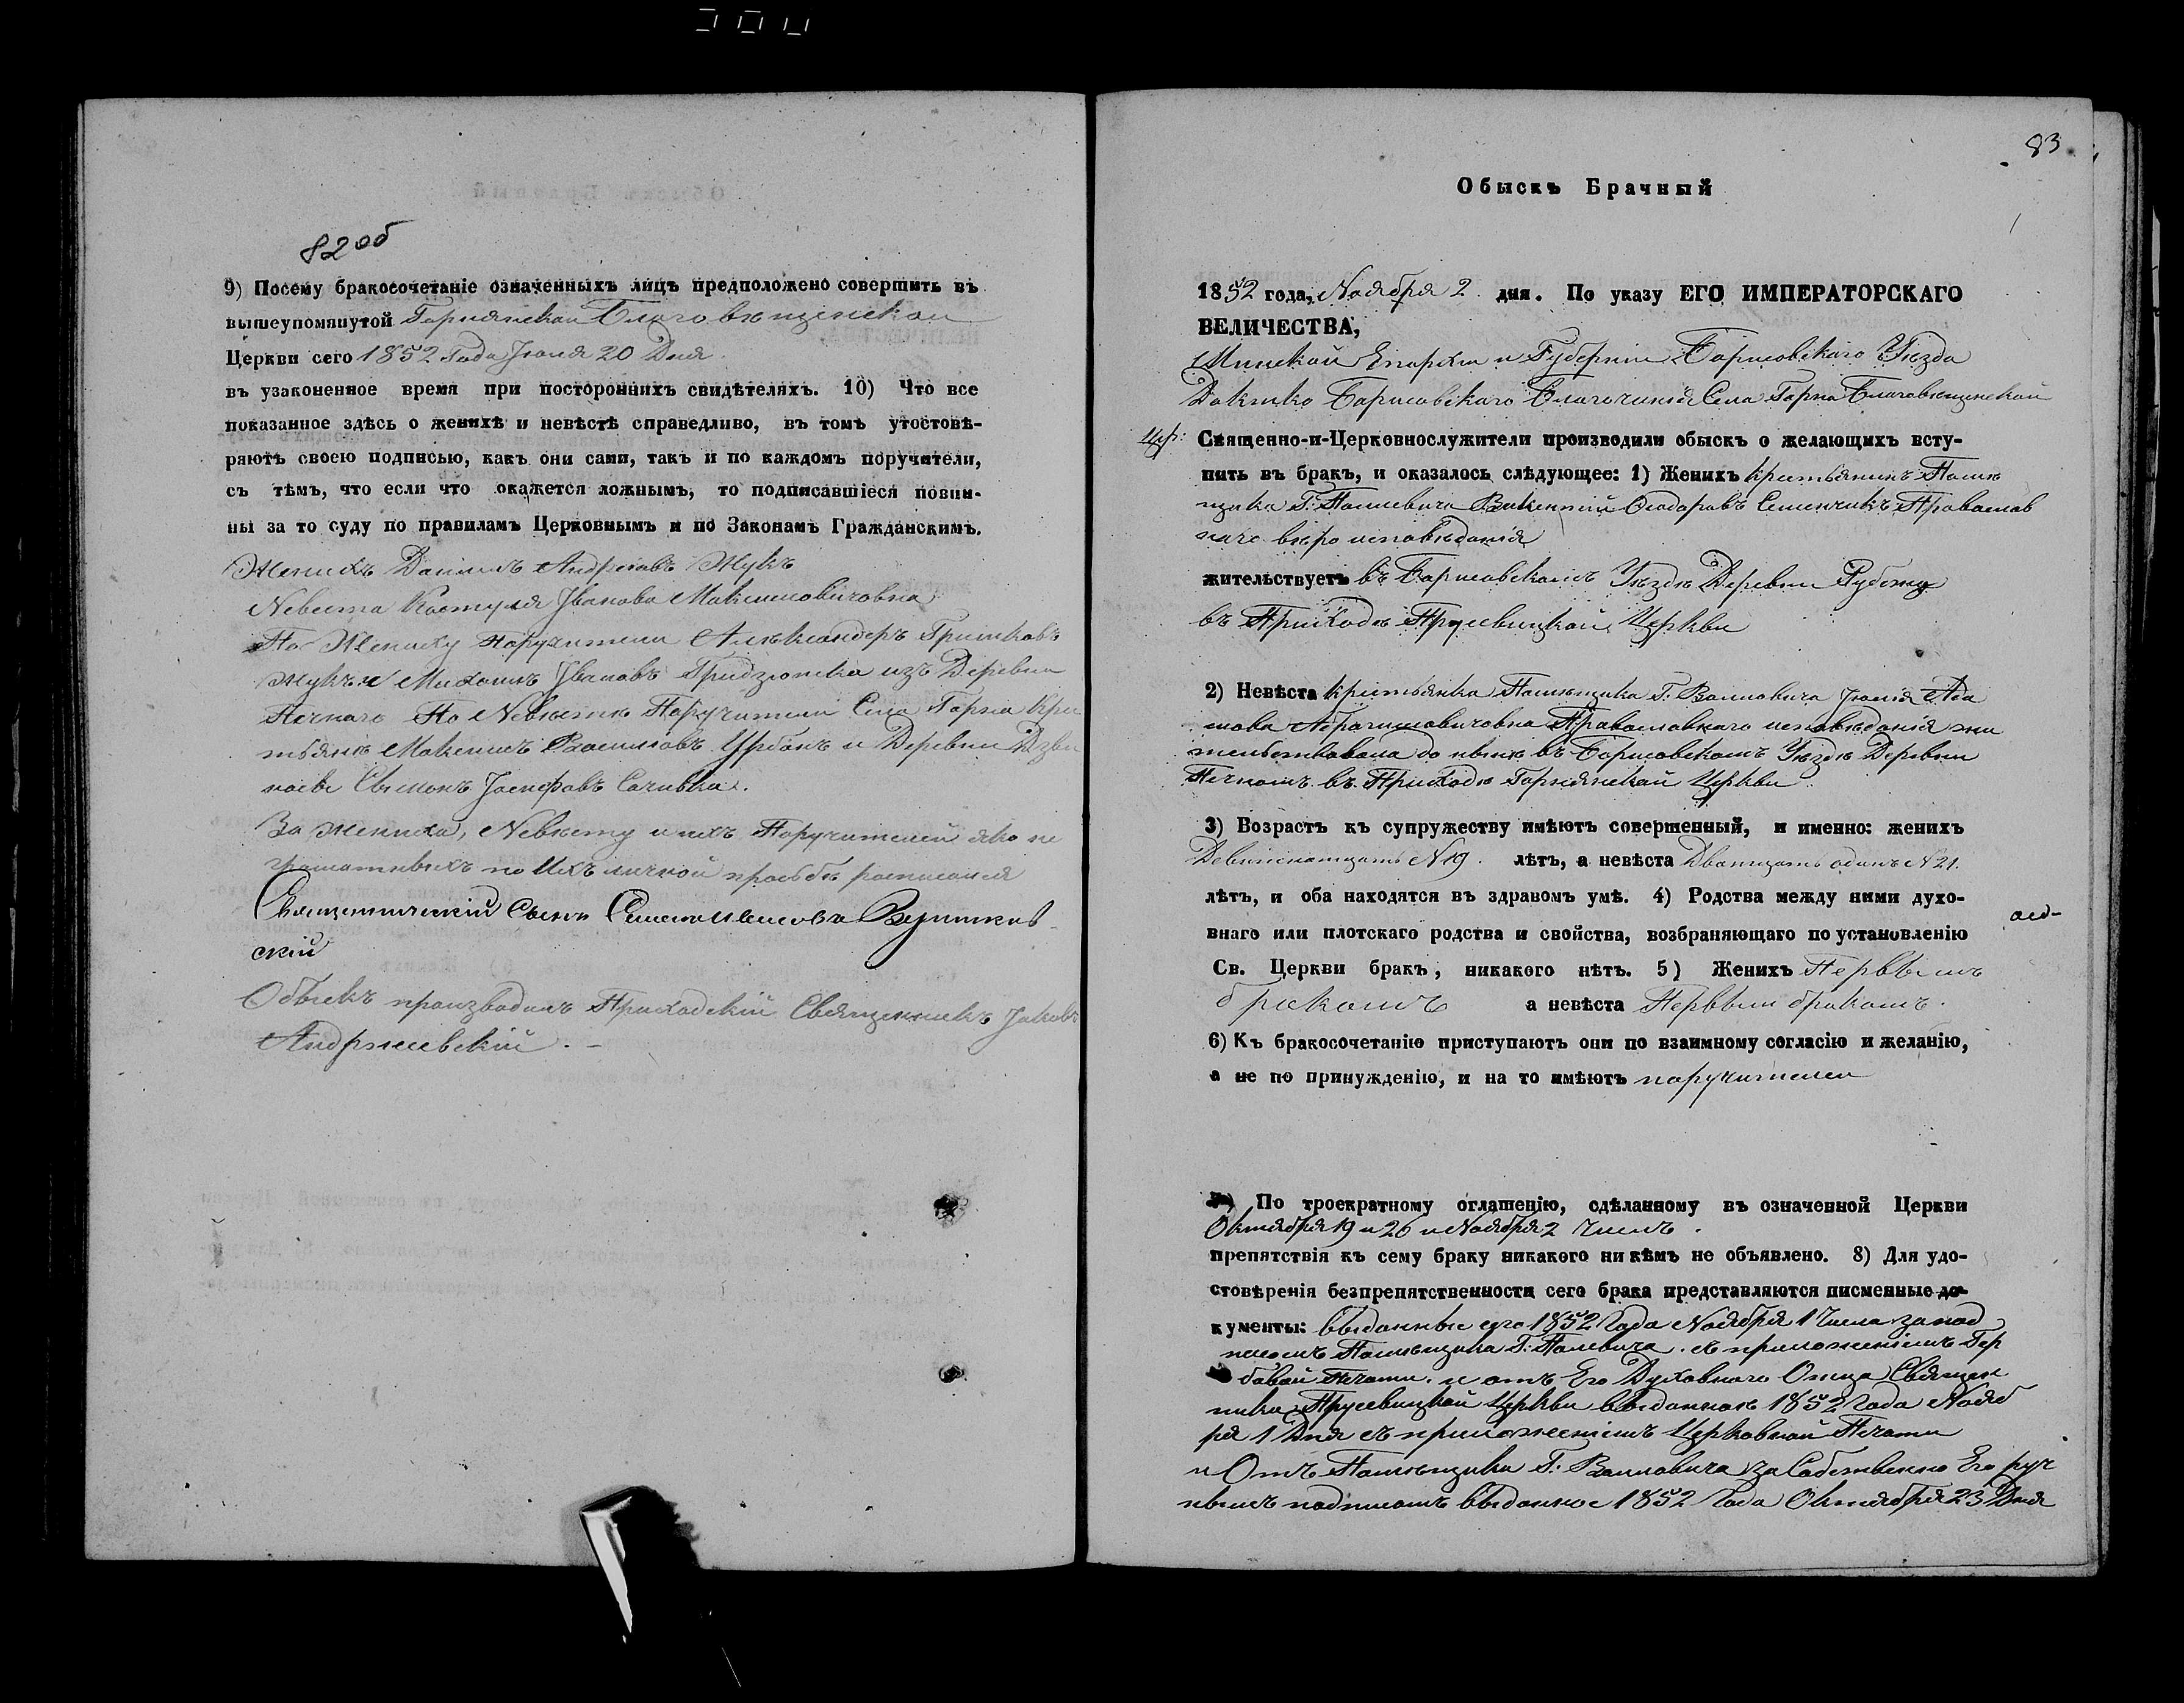 82 об
9) Посему бракосочетаніе означенныхъ лицъ предположено совершить въ
вышеупомянутой Горнянской Благовѣщенской
Церкви сего 1852 Года Іюля 20 Дня.
въ узаконенное время при постороннихъ свидѣтеляхъ. 10) Что все
показанное здѣсь о женихѣ и невѣстѣ справедливо, въ томъ утостовѣ-
ряютъ своею подписью, какъ они сами, такъ и по каждомъ поручители,
съ тѣмъ, что если что окажется ложнымъ, то подписавшіеся повин-
ны за то суду по правиламъ Церковнымъ и по Законамъ Гражданскимъ.
Женихъ Данилъ Андреевъ Жукъ
Невеста Костуля Іванова Максимовичовна
По Жениху Поручители Александеръ Гришковъ
Жукъ и Михаилъ Івановъ Гридзюшка изъ Деревни
Печнаго По Невѣстѣ Поручители Села Горна Кре
тьянѣ Максимъ Василювъ Урбанъ и Деревни Дзви
носве Сымонъ Іосифовъ Сачивка.
За жениха, Невѣсту и ихъ Поручителей яко не
грамотныхъ по Ихъ личной прозьбѣ росписался
Священническій Сынъ
скій
Обыскъ производилъ Приходскій Священникъ Јаковъ
Андржеевскій. –
83
Обыскъ Брачный
1852 года, Ноября 2 дня. По указу ЕГО ИМПЕРАТОРСКАГО
ВЕЛИЧЕСТВА,
Минской Епархіи и Губерніи Борисовскаго Уѣзда
Докшко Борисовскаго Благочинія Села Горна Благовѣщенской
Цер: Священно-и-Церковнослужители производили обыскъ о желающихъ всту-
пить въ бракъ, и оказалось слѣдующее: 1) Женихъ Крестьянинъ Помѣ
щика Г: Викентій Ѳеодоровъ Семенчикъ Православ
наго вѣро исповѣданія
жительствуетъ въ Борисовскомъ Уѣздѣ Деревни
въ Приходѣ Прусевицкой Церкви
2) Невѣста Крестьянка Помѣщика Г: Воиловича Јюлія Ада
мова Абрагимовичовна Православнаго исповѣданія жи
тельствовала до нынѣ въ Борисовскомъ Уѣздѣ Деревни
Печномъ въ Приходѣ Горнянской Церкви
3) Возрастъ къ супружеству имѣютъ совершенный, и именно: женихъ
Девятнатцать N 19. лѣтъ, а невѣста Дватцать одинъ N 21.
лѣтъ, и оба находятся въ здравомъ умѣ. 4) Родства между ними духо-
внаго или плотскаго родства и свойства, возбраняющаго по установленію
Св. Церкви бракъ, никакого нѣтъ. 5) Женихъ Первымъ
бракомъ а невѣста Первымъ бракомъ.
6) Къ бракосочетанію приступаютъ они по взаимному согласію и желанію,
а не по принужденію, и на то имѣютъ поручителей
7) По троекратному оглашенію, сдѣланному въ означенной Церкви
Октября 19 и 26 и Ноября 2 числъ.
препятствія къ сему браку никакого никѣмъ не объявлено. 8) Для удо-
стовѣренія безпрепятственности сего брака представляются писменные до-
кументы: выданные его 1852 Года Ноября 1 Числа за под
писомъ Помѣщика Г: съ приложеніемъ Гер
бовой Печати. и отъ Его Духовнаго Отца Священ
ника Прусевицкой Церкви выданное 1852 Года Нояб
ря 1 Дня съ приложеніемъ Церковной Печати
и Отъ Помѣщика Г: Воиловича за Собственно Его руч
нымъ подписомъ выданное 1852 Года Октября 23 Дня